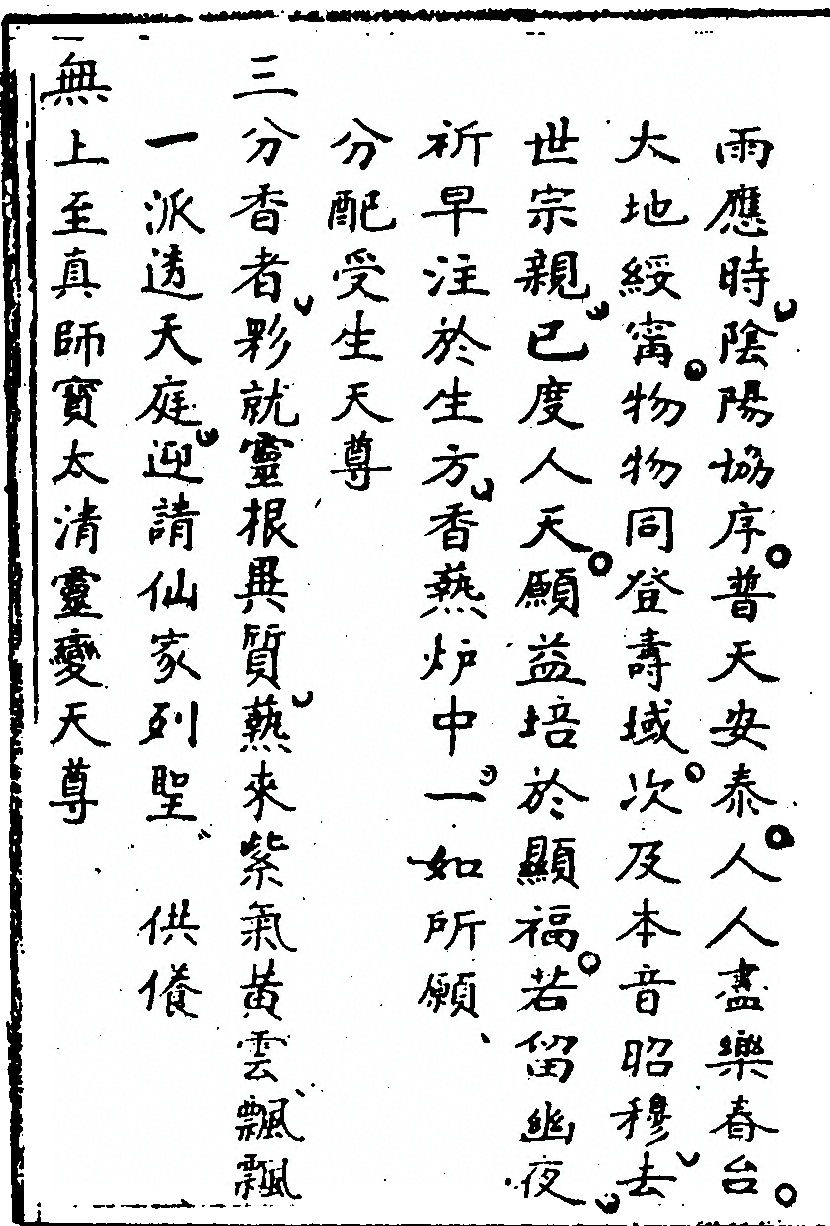 雨應時陰陽協序普天安泰人人盡樂春台
大地綏甯物物同登壽域次及本音昭穆去
世宗親已度人天願益培於顯福若留幽夜
祈早注於生方香爇炉中一如所願
分配受生天尊
三分香者彩就靈根異質爇來紫氣黃雲飄飄
一派透天庭迎請仙家列聖　供養
無上至真師寶太清靈變天尊